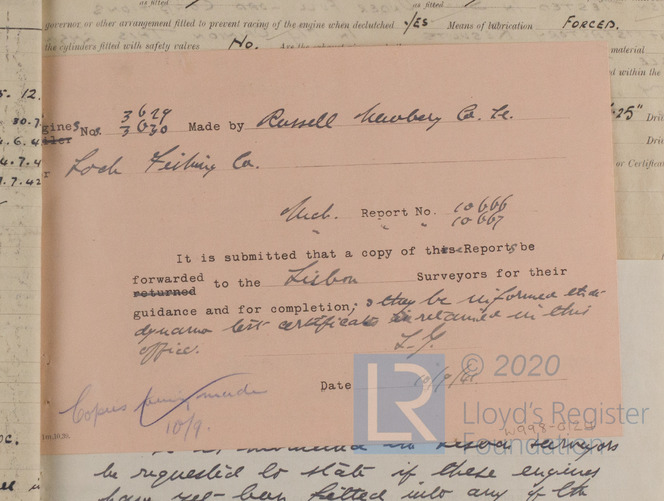 as fitted as fitted
governor or other arrangement fitted to prevent racing of the engine when declutched YES Means of lubrication FORCED.
the cylinders fitted with safety valves No. Are the material
d within the
5. 12.
30.7.
4.6.4
4.7.4
7.42
25" Dri
Dri
or Certificat
Engines Nos. 3629 3630 Made by Russell Newbery Co. Ld.
Loch Fishing Co.
Mch. Report No. 10666
" " " 10667
It is submitted that a copy of these Reports be
forwarded
returned to the Lisbon Surveyors for their
guidance and for completion; & they be informed the
dynamo test certificate is retained in this
office.
Date 10/9/41
Copies being made
10/9.
© 2020
LR
Lloyd's Register
Foundation
W998-0124
oc.
Surveyors
be requested to state if these engines
have yet been fitted into any of the